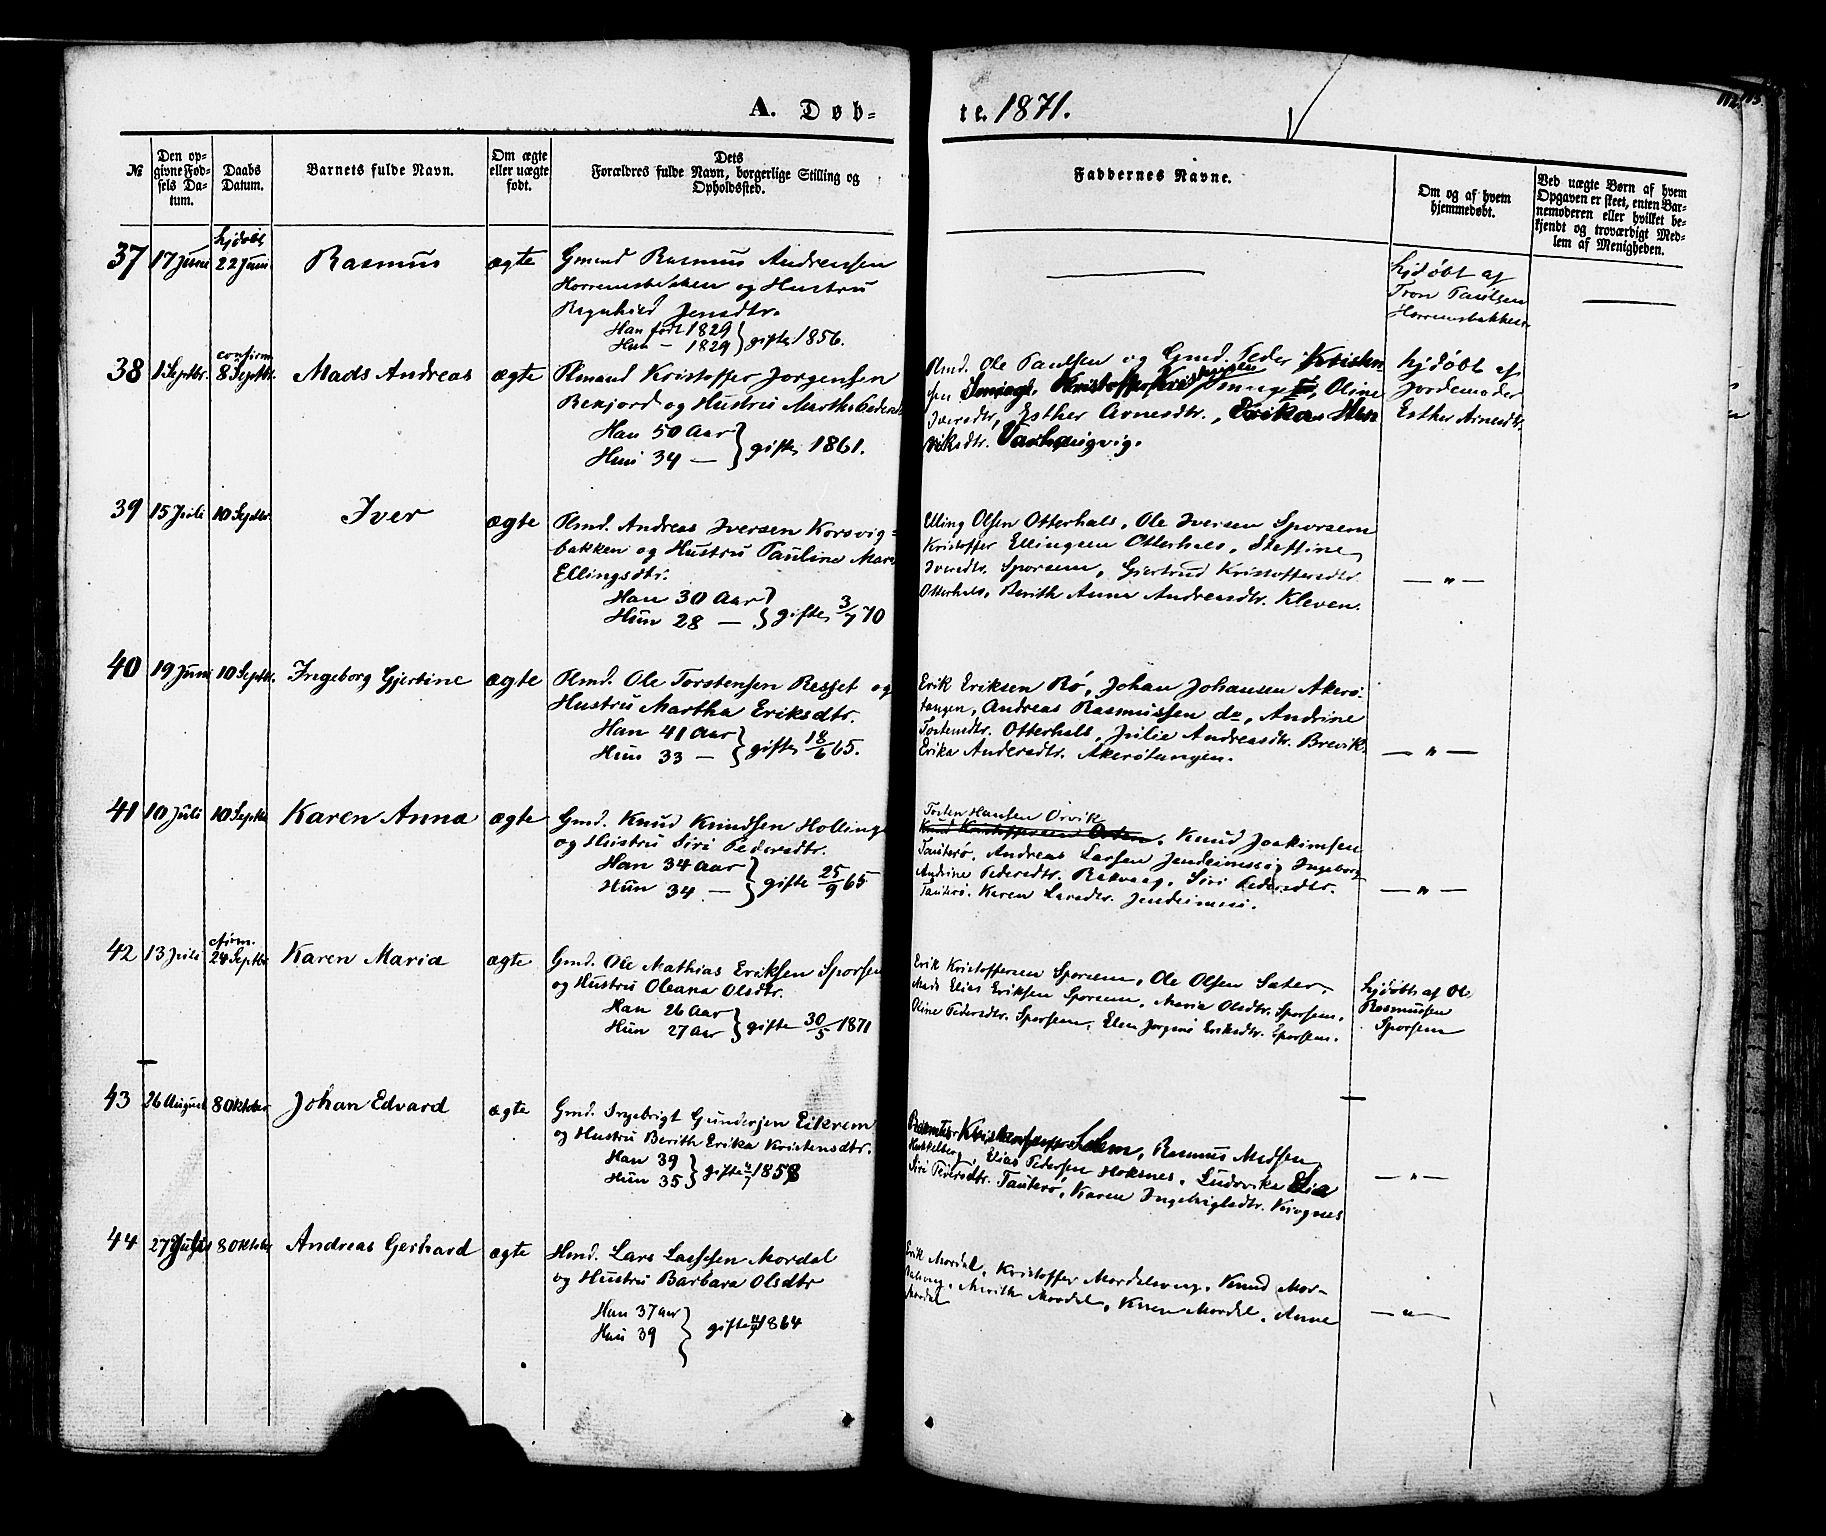 A. Døb-
te. 1871.
112.
№
Den op-
givne Fød-
sels Da-
tum.
Daabs
Datum.
Barnets fulde Navn.
Om ægte
eller uægte
født.
Dets
Forældres fulde Navn, borgerlige Stilling og
Opholdssted.
Faddernes Navne.
Om og af hvem
hjemmedøbt.
Ved uægte Børn af hvem
Opgaven er skeet, enten Bar-
nemoderen eller hvilket be-
kjendt og troværdigt Med-
lem af Menigheden.
37
17 Juni
hjdøbt
22 Juni
Rasmus
ægte
Gmand Rasmus Andreasen
Horremsbakken og Hustru
Ragnhild Jensdtr.
Han født 1829
Hun — 1829 } gifte 1856.
hjdøbt af
Tron Paulsen
Horremsbakken
38
1 Septbr.
confirm.
8 Septbr.
Mads Andreas
ægte
Plmand Kristoffer Jørgensen
Rekjord og Hustru Martha Pedersdtr
Han 50 Aar
Hun 34 — } gifte 1861.
Plmd. Ole Paulsen og Gmd. Peder Kristen
sen Kristoffer Kristensen Oline
Iversdtr, Esther Arnesdtr., Erika Hen
riksdtr. Varhaugvig.
hjdøbt af
Jordemoder
Esther Arnesdtr.
39
15 Juli
10 Septbr.
Iver
ægte
Plmd. Andreas Iversen Korsvig-
bakken og Hustru Pauline Mari
Ellingsdtr.
Han 30 Aar
Hun 28 — } gifte 3/7 70
Elling Olsen Otterhals, Ole Iversen Sporsem
Kristoffer Ellingsen Otterhals, Steffine
Iversdtr. Sporsem, Gjertrud Kristoffersdtr.
Otterhals, Berith Anna Andreasdtr. Kleven.
— " —
40
19 Juni
10 Septbr.
Ingeborg Gjertine
ægte
Plmd. Ole Torstensen Resset og
Hustru Martha Eriksdtr.
Han 41 Aar
Hun 33 — } gifte 18/6 65.
Erik Eriksen Rø, Johan Johansen Akerø-
tangen, Andreas Rasmussen do, Andrine
Tostensdtr. Otterhals, Julie Andreasdtr. Brevik,
Erika Andersdtr. Akerøtangen.
— " —
41
10 Juli
10 Septbr
Karen Anna
ægte
Gmd. Knud Knudsen Hollings
og Hustru Siri Pedersdtr.
Han 34 Aar
Hun 34 — } gifte 25/9 65
Tosten Hansen Orvik
Knud Kristoffersen, Knud Joakimsen
Tauterø, Andreas Larsen Jendeimssæ Ingeborg
Andrine Pedersdtr. Rekvaag, Siri Pedersdtr.
Tauterø, Karen Larsdtr. Jendeimssæ.
— " —
42
13 Juli
cfirm.
24 Septbr
Karen Maria
ægte
Gmd. Ole Mathias Eriksen Sporsem
og Hustru Oleana Olsdtr.
Han 26 Aar
Hun 27 Aar } gifte 30/5 1871
Erik Kristoffersen Sporsem, Ole Olsen Sæter,
Mads Elias Eriksen Sporsem, Maria Olsdtr. Sporsem,
Oline Pedersdtr. Sporsem, Elen Jørgine Eriksdtr. Sporsem.
hjdøbt af Ole
Rasmussen
Sporsem
43
26 August
8 Oktober
Johan Edvard
ægte
Gmd. Ingebrigt Gundersen Eikrem
og Hustru Berith Erika Kristensdtr.
Han 39
Hun 35 } gifte 4/7 1858
Kristensen Solem, Rasmus Madsen
Haskelberg, Elias Pedersen Hoksnes, Ludovika Elia
Siri Pedersdtr. Tauterø, Karen Ingebrigtsdtr. Krognes
— " —
44
27 Juli
8 Oktober
Andreas Gerhard
ægte
Hmd. Lars Lassesen Mordal
og Hustru Barbara Olsdtr
Han 37 Aar
Hun 39 } gifte 1864
Erik Mordal, Kristoffer Mordalsvog, Knud Mor-
dalsvog, Marith Mordal, Karen Mordal, Anne
Mordal
— " —